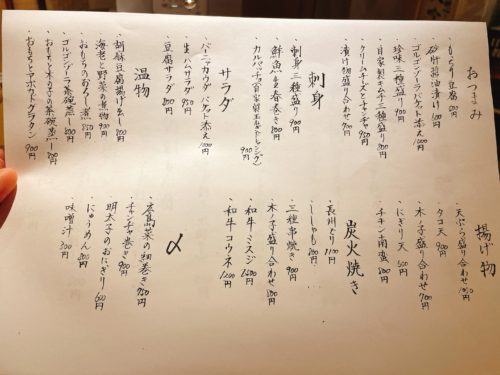 おつまみ
・もっちり豆腐 500円
・砂肝醤油漬け 600円
・ゴルゴンゾーラバケット添え 1000円
・珍味三種盛り 900円
・自家製キムチ三種盛り 800円
・クリームチーズとチャンチャ 950円
・漬け物盛り合わせ 700円
刺身
・刺身三種盛り 900円
・鮮魚生春巻き 800円
・カルパッチョ(自家製玉葱ドレッシング) 900円
サラダ
・バーニャカウダ バケット添え 1000円
・生ハムサラダ 950円
・豆腐サラダ 800円
温物
・胡麻豆腐揚げ出し 800円
・海老と野菜の煮物 900円
・おもちのおろし煮 850円
・ゴルゴンゾーラ茶碗蒸し 800円
・おもちと木の子の茶碗蒸し 800円
・おもちとアボカドグラタン 900円
揚げ物
・天ぷら盛り合わせ 1050円
・タコ天 900円
・木ノ子盛り合わせ 700円
・にぎり天 500円
・チキン南蛮 800円
炭火焼き
・長州どり 1100円
・ししゃも 800円
・三種串焼き 900円
・木ノ子盛り合わせ 800円
・和牛ミスジ 1600円
・和牛コウネ 1200円
〆
・広島菜の細巻き 750円
・チャンチャ巻き 900円
・明太子のおにぎり 600円
・にゅうめん 800円
・味噌汁 300円